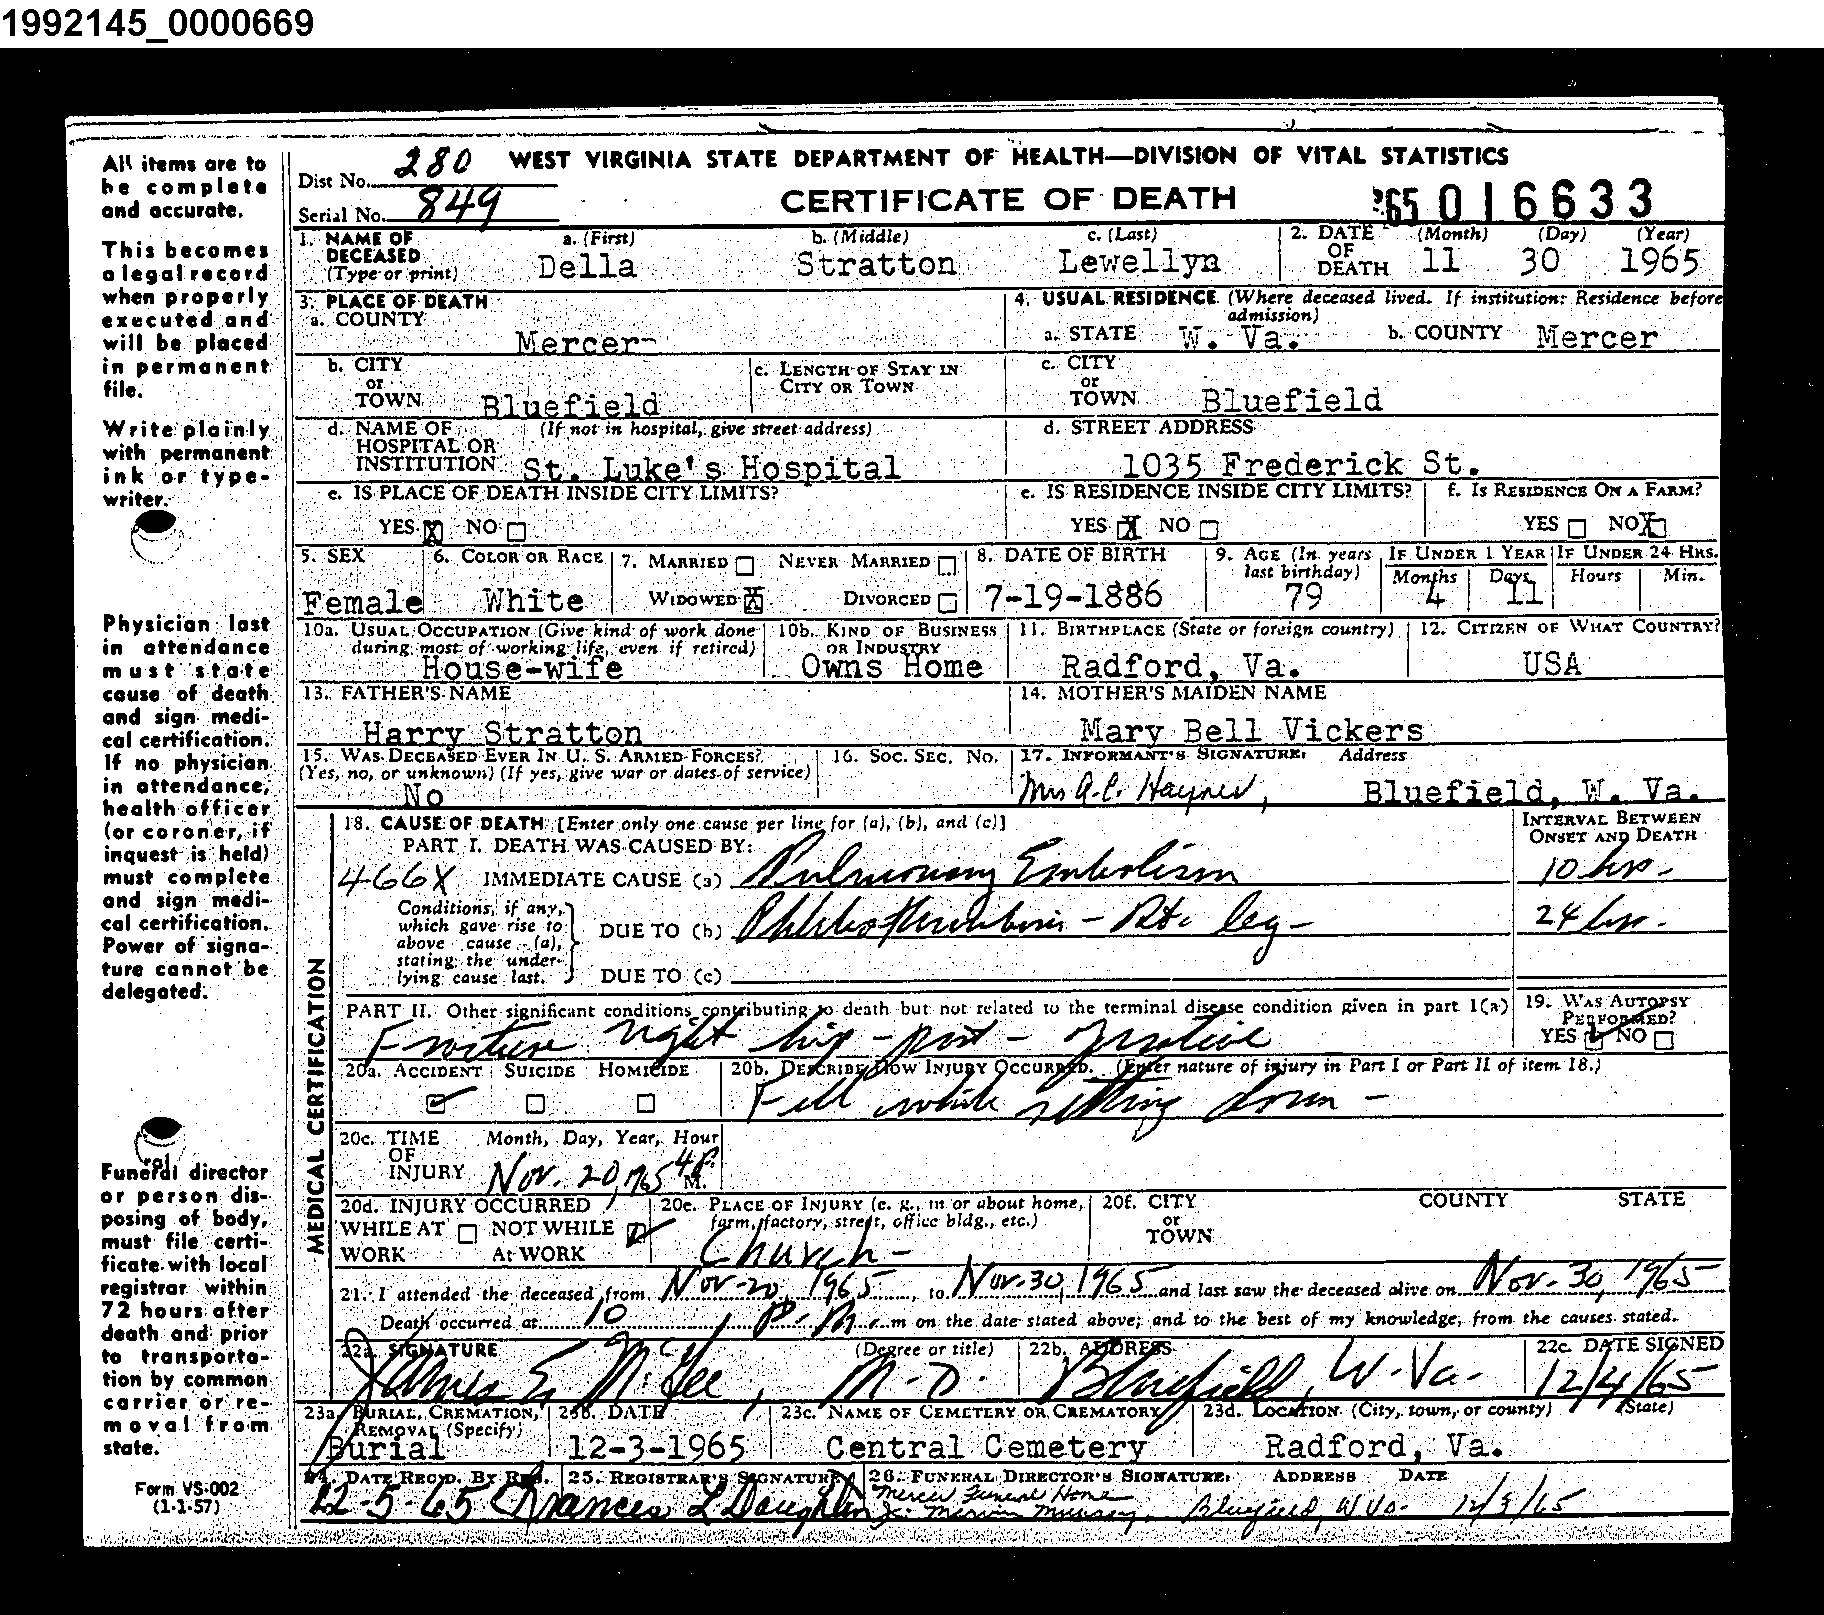 1992145_0000669
All items are to be complete and accurate.
This becomes a legal record when properly executed and will be placed in permanent file.
Write plainly with permanent ink or typewriter.
Physician last in attendance must state cause of death and sign medical certification. If no physician in attendance, health officer (or coroner, if inquest is held) must complete and sign medical certification. Power of signature cannot be delegated.
Funeral director or person disposing of body, must file certificate with local registrar within 72 hours after death and prior to transportation by common carrier or removal from state.
Form VS-002
(1-1-57)
Dist No. 280 WEST VIRGINIA STATE DEPARTMENT OF HEALTH—DIVISION OF VITAL STATISTICS
Serial No. 849 CERTIFICATE OF DEATH 65 016633
1. NAME OF DECEASED (Type or print) a. (First) Della b. (Middle) Stratton c. (Last) Lewellyn 2. DATE OF DEATH (Month) 11 (Day) 30 (Year) 1965
3. PLACE OF DEATH
a. COUNTY Mercer
4. USUAL RESIDENCE (Where deceased lived. If institution: Residence before admission)
a. STATE W. Va. b. COUNTY Mercer
b. CITY or TOWN Bluefield c. LENGTH OF STAY IN CITY OR TOWN
c. CITY or TOWN Bluefield
d. NAME OF HOSPITAL OR INSTITUTION (If not in hospital, give street address) St. Luke's Hospital
d. STREET ADDRESS 1035 Frederick St.
e. IS PLACE OF DEATH INSIDE CITY LIMITS? YES X NO
e. IS RESIDENCE INSIDE CITY LIMITS? YES X NO
f. IS RESIDENCE ON A FARM? YES NO X
5. SEX Female 6. COLOR OR RACE White 7. MARRIED NEVER MARRIED WIDOWED X DIVORCED 8. DATE OF BIRTH 7-19-1886 9. AGE (In years last birthday) 79 IF UNDER 1 YEAR Months 4 Days 11 IF UNDER 24 HRS. Hours Min.
10a. USUAL OCCUPATION (Give kind of work done during most of working life, even if retired) House-wife 10b. KIND OF BUSINESS OR INDUSTRY Owns Home 11. BIRTHPLACE (State or foreign country) Radford, Va. 12. CITIZEN OF WHAT COUNTRY? USA
13. FATHER'S NAME Harry Stratton 14. MOTHER'S MAIDEN NAME Mary Bell Vickers
15. WAS DECEASED EVER IN U. S. ARMED FORCES? (Yes, no, or unknown) (If yes, give war or dates of service) No 16. SOC. SEC. NO. 17. INFORMANT'S SIGNATURE: Address Mrs A.C. Haynes, Bluefield, W. Va.
MEDICAL CERTIFICATION
18. CAUSE OF DEATH [Enter only one cause per line for (a), (b), and (c)] INTERVAL BETWEEN ONSET AND DEATH
PART I. DEATH WAS CAUSED BY:
466X IMMEDIATE CAUSE (a) Pulmonary Embolism 10 hrs.
Conditions, if any, which gave rise to above cause (a), stating the underlying cause last. DUE TO (b) Phlebothrombosis - Rt. leg - 24 hrs.
DUE TO (c)
PART II. Other significant conditions contributing to death but not related to the terminal disease condition given in part I(a) 19. WAS AUTOPSY PERFORMED? YES NO
Fracture right hip - post - operative
20a. ACCIDENT SUICIDE HOMICIDE 20b. DESCRIBE HOW INJURY OCCURRED. (Enter nature of injury in Part I or Part II of item 18.)
Fell while sitting down -
20c. TIME OF INJURY Month, Day, Year, Hour Nov. 20, 1965 4 P. M.
20d. INJURY OCCURRED WHILE AT WORK NOT WHILE AT WORK 20e. PLACE OF INJURY (e. g., in or about home, farm, factory, street, office bldg., etc.) Church - 20f. CITY or TOWN COUNTY STATE
21. I attended the deceased from Nov-20, 1965, to Nov. 30, 1965 and last saw the deceased alive on Nov. 30, 1965
Death occurred at 10 P. M. m on the date stated above; and to the best of my knowledge, from the causes stated.
22a. SIGNATURE (Degree or title) James E. McGee, M.D. 22b. ADDRESS Bluefield, W. Va. 22c. DATE SIGNED 12/4/65
23a. BURIAL, CREMATION, REMOVAL (Specify) Burial 23b. DATE 12-3-1965 23c. NAME OF CEMETERY OR CREMATORY Central Cemetery 23d. LOCATION (City, town, or county) (State) Radford, Va.
24. DATE REC'D. BY REG. 12-5-65 25. REGISTRAR'S SIGNATURE Frances L Daughton 26. FUNERAL DIRECTOR'S SIGNATURE: ADDRESS DATE
Mercer Funeral Home
Bluefield, W Va. 12/3/65